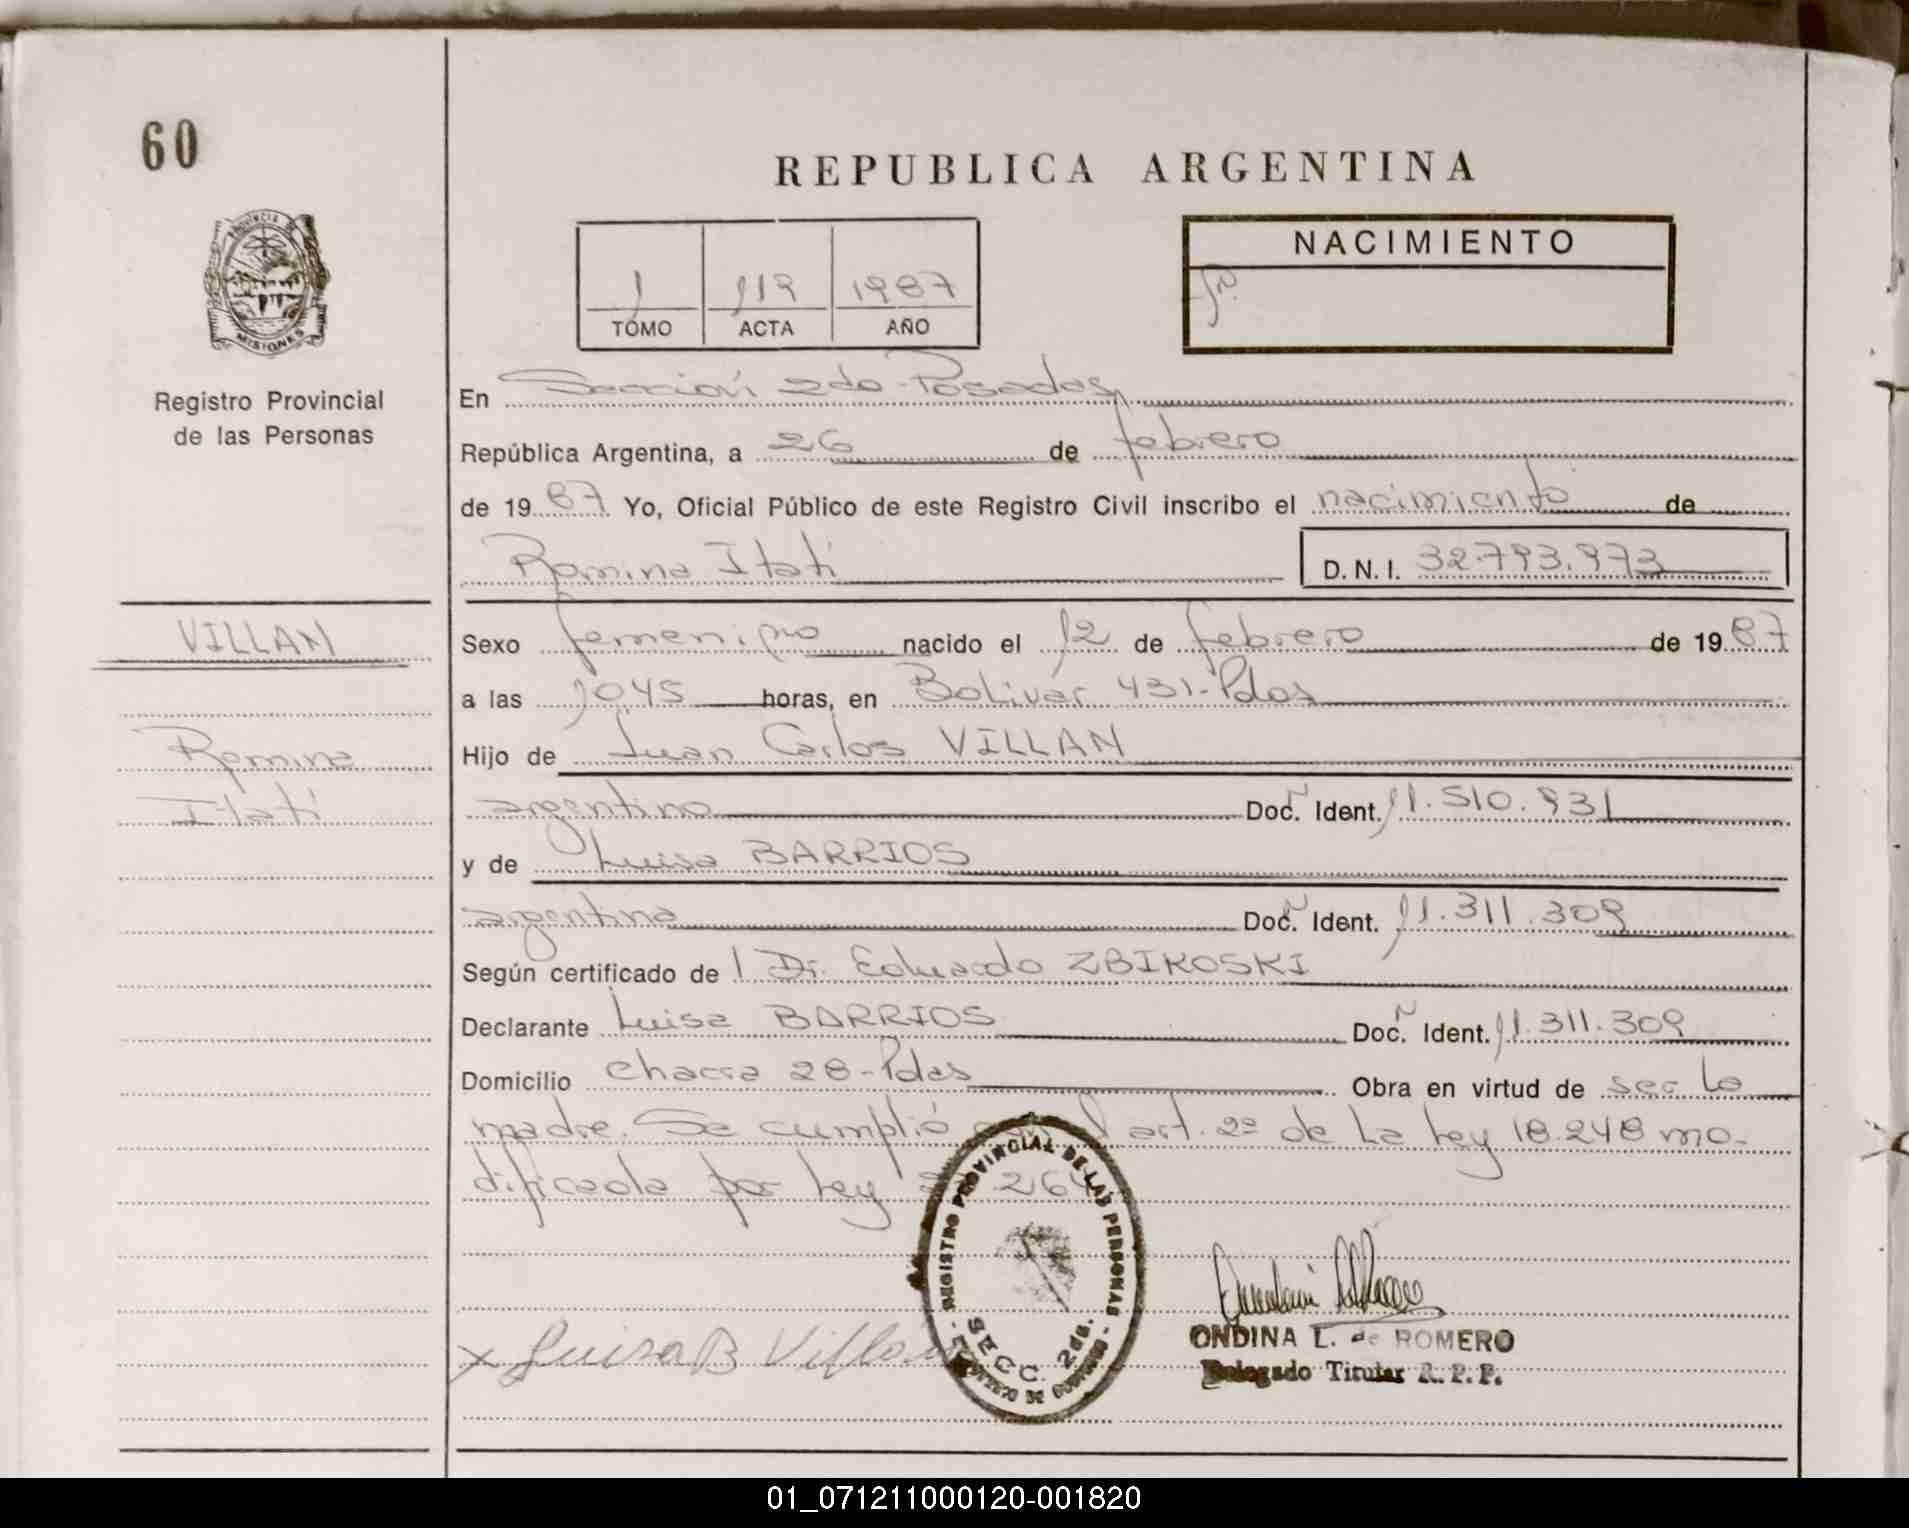 60
REPUBLICA ARGENTINA
PROVINCIA DE MISIONES
1 119 1987
TOMO ACTA AÑO
NACIMIENTO
Registro Provincial
de las Personas
En Sección 2da-Posadas
República Argentina, a 26 de febrero
de 1987 Yo, Oficial Público de este Registro Civil inscribo el nacimiento de
Romina Itatí D.N.I. 32.793.973
VILLAN
Romina
Itatí
Sexo femenino nacido el 12 de febrero de 1987
a las 1045 horas, en Bolivar 431-Pdas
Hijo de Juan Carlos VILLAN
argentino Doc. Ident. 11.510.931
y de Luisa BARRIOS
argentina Doc. Ident. 11.311.309
Según certificado de Dr. Eduardo ZBIKOSKI
Declarante Luisa BARRIOS Doc. Ident. 11.311.309
Domicilio chacra 28-Pdas Obra en virtud de ser la
madre. Se cumplió art. 2º de La Ley 18.248 mo-
dificada por Ley 264
REGISTRO PROVINCIAL DE LAS PERSONAS
SECC. 2da.
x Luisa B Villan
ONDINA L. de ROMERO
Delegado Titular R. P. P.
01_071211000120-001820